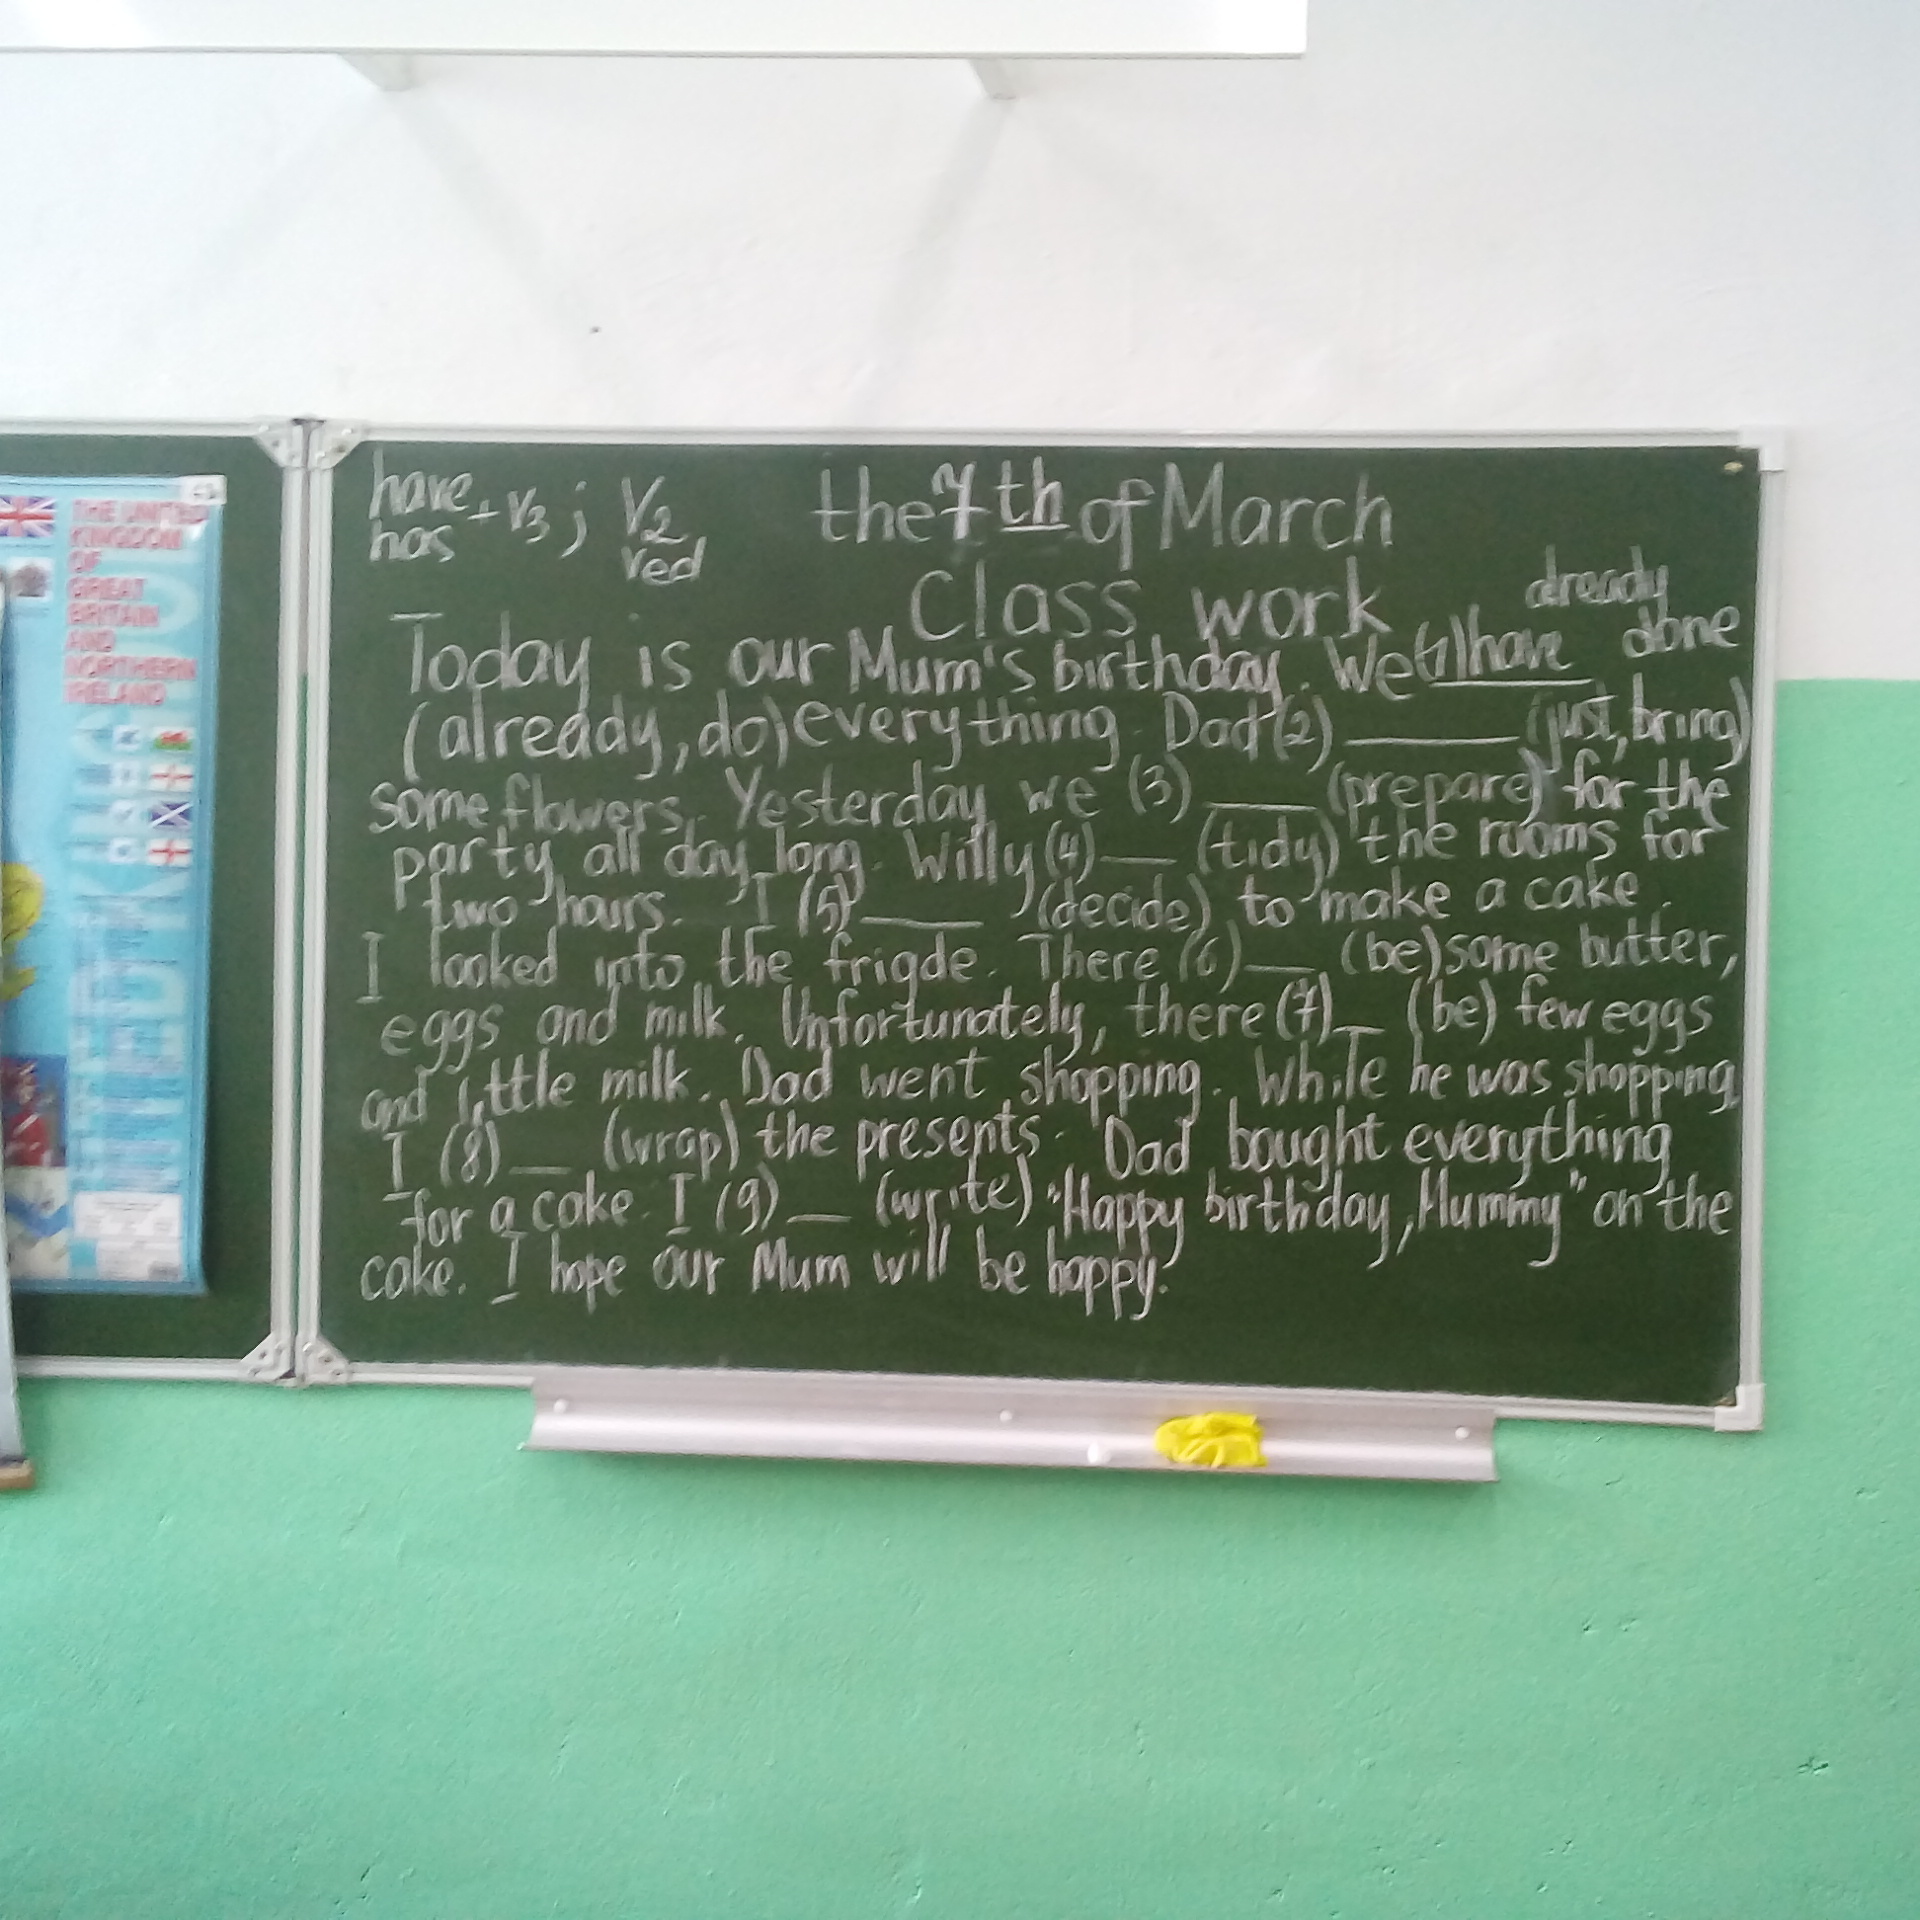 THE UNITED
KINGDOM
OF
GREAT
BRITAIN
AND
NORTHERN
IRELAND
have
has + V3 ; V2
Ved
the 7th of March
Class work
already
Today is our Mum's birthday. We (1) have done
(already, do) everything. Dad (2) ______ (just, bring)
some flowers. Yesterday we (3) ____ (prepare) for the
party all day long. Willy (4) ___ (tidy) the rooms for
two hours. I (5) ____ (decide) to make a cake.
I looked into the frigde. There (6) __ (be) some butter,
eggs and milk. Unfortunately, there (7) __ (be) few eggs
and little milk. Dad went shopping. While he was shopping
I (8) __ (wrap) the presents. Dad bought everything
for a cake. I (9) __ (write) "Happy birthday, Mummy" on the
cake. I hope our Mum will be happy.